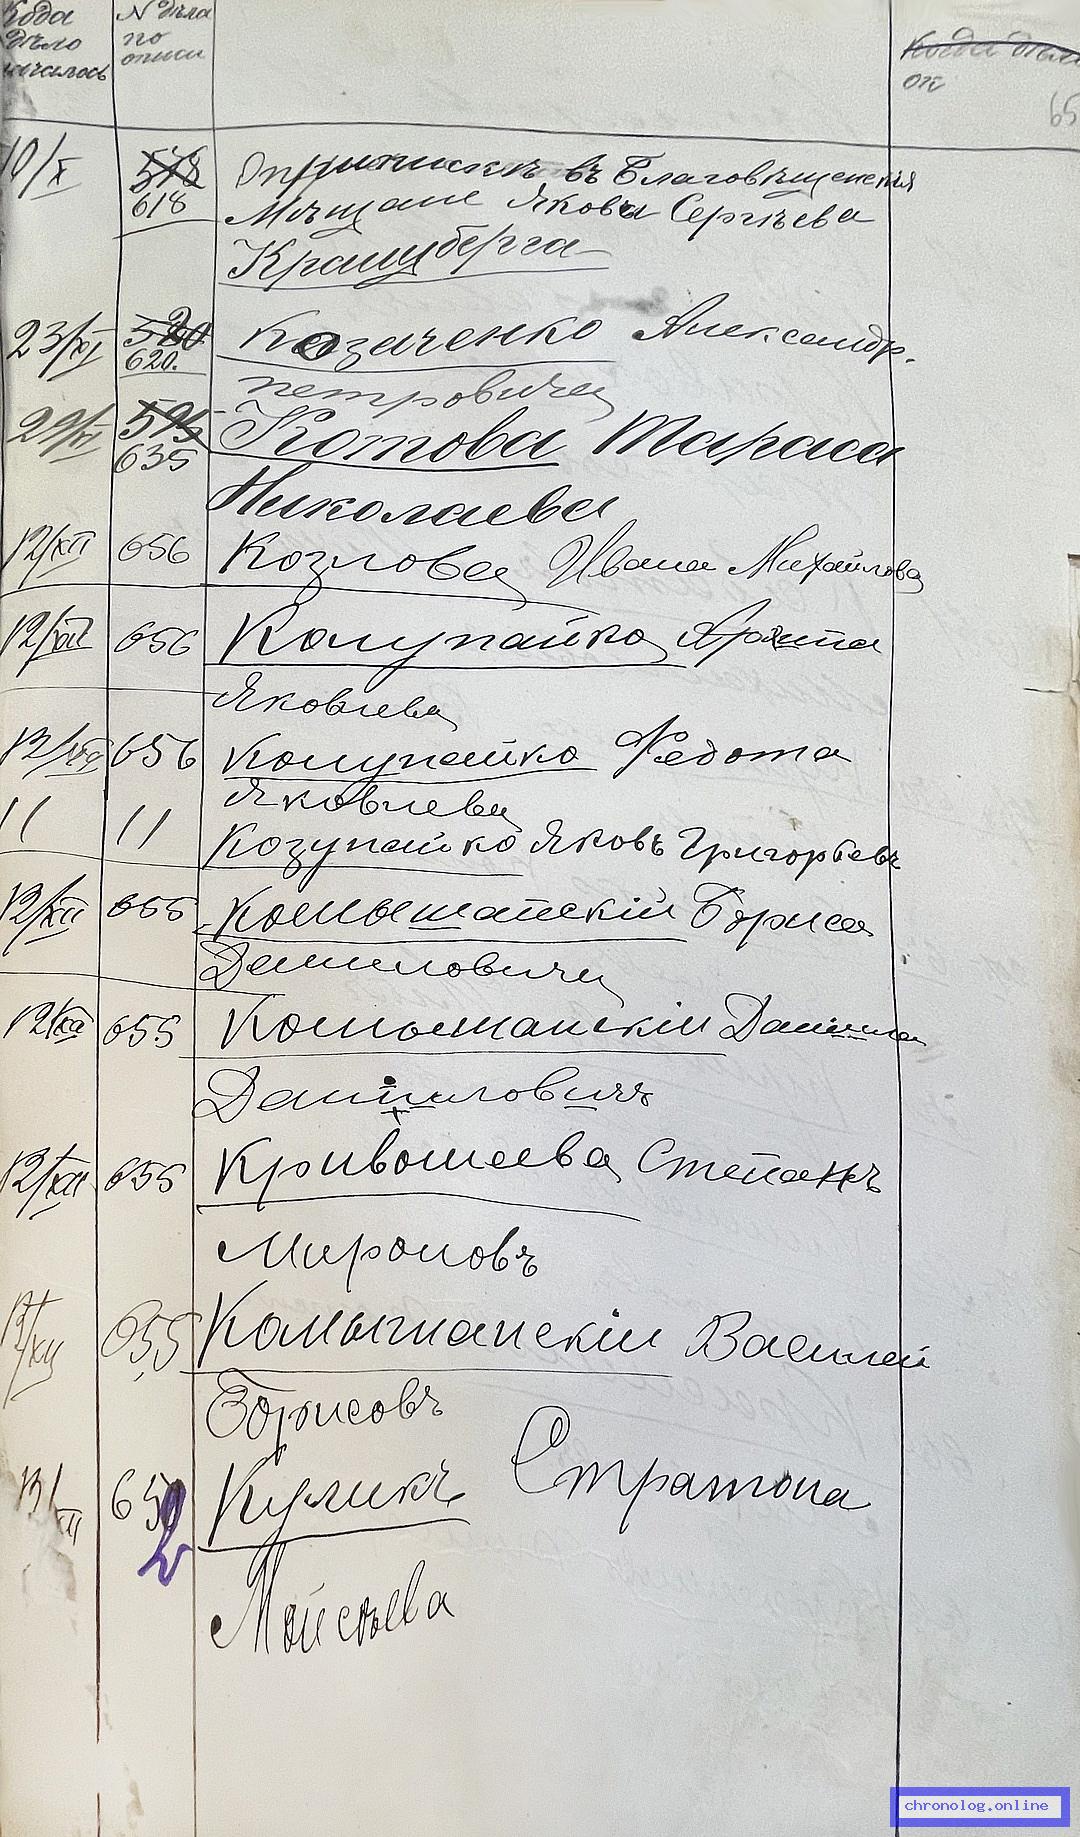 Когда дѣло началось
N дѣла по описи
Когда дѣло
ок
65
10/X 578 618 О припискѣ въ Благовѣщенскія
Мѣщане Якова Сергѣева
Кранцберга
23/XI 580 620. Козаченко Александр.
Петровича
29/XI 595 635 Котова Тараса
Николаева
12/XII 656 Козлова Ивана Михайлова
12/XII 656 Колупайко
Яковлева
12/XII 656 Колупайко Федота
Яковлева
11 11 Козупайко Яковъ Григорьевъ
12/XII 655 Комышанскій Бориса
Даниловича
12/XII 655 Комышанскій Данила
Даниловичъ
12/XII 655 Кривошеева Степанъ
Мироновъ
12/XII 655 Комышанскій Василей
Борисовъ
13/XII 652 Куликъ Стратона
Мойсѣева
chronolog.online